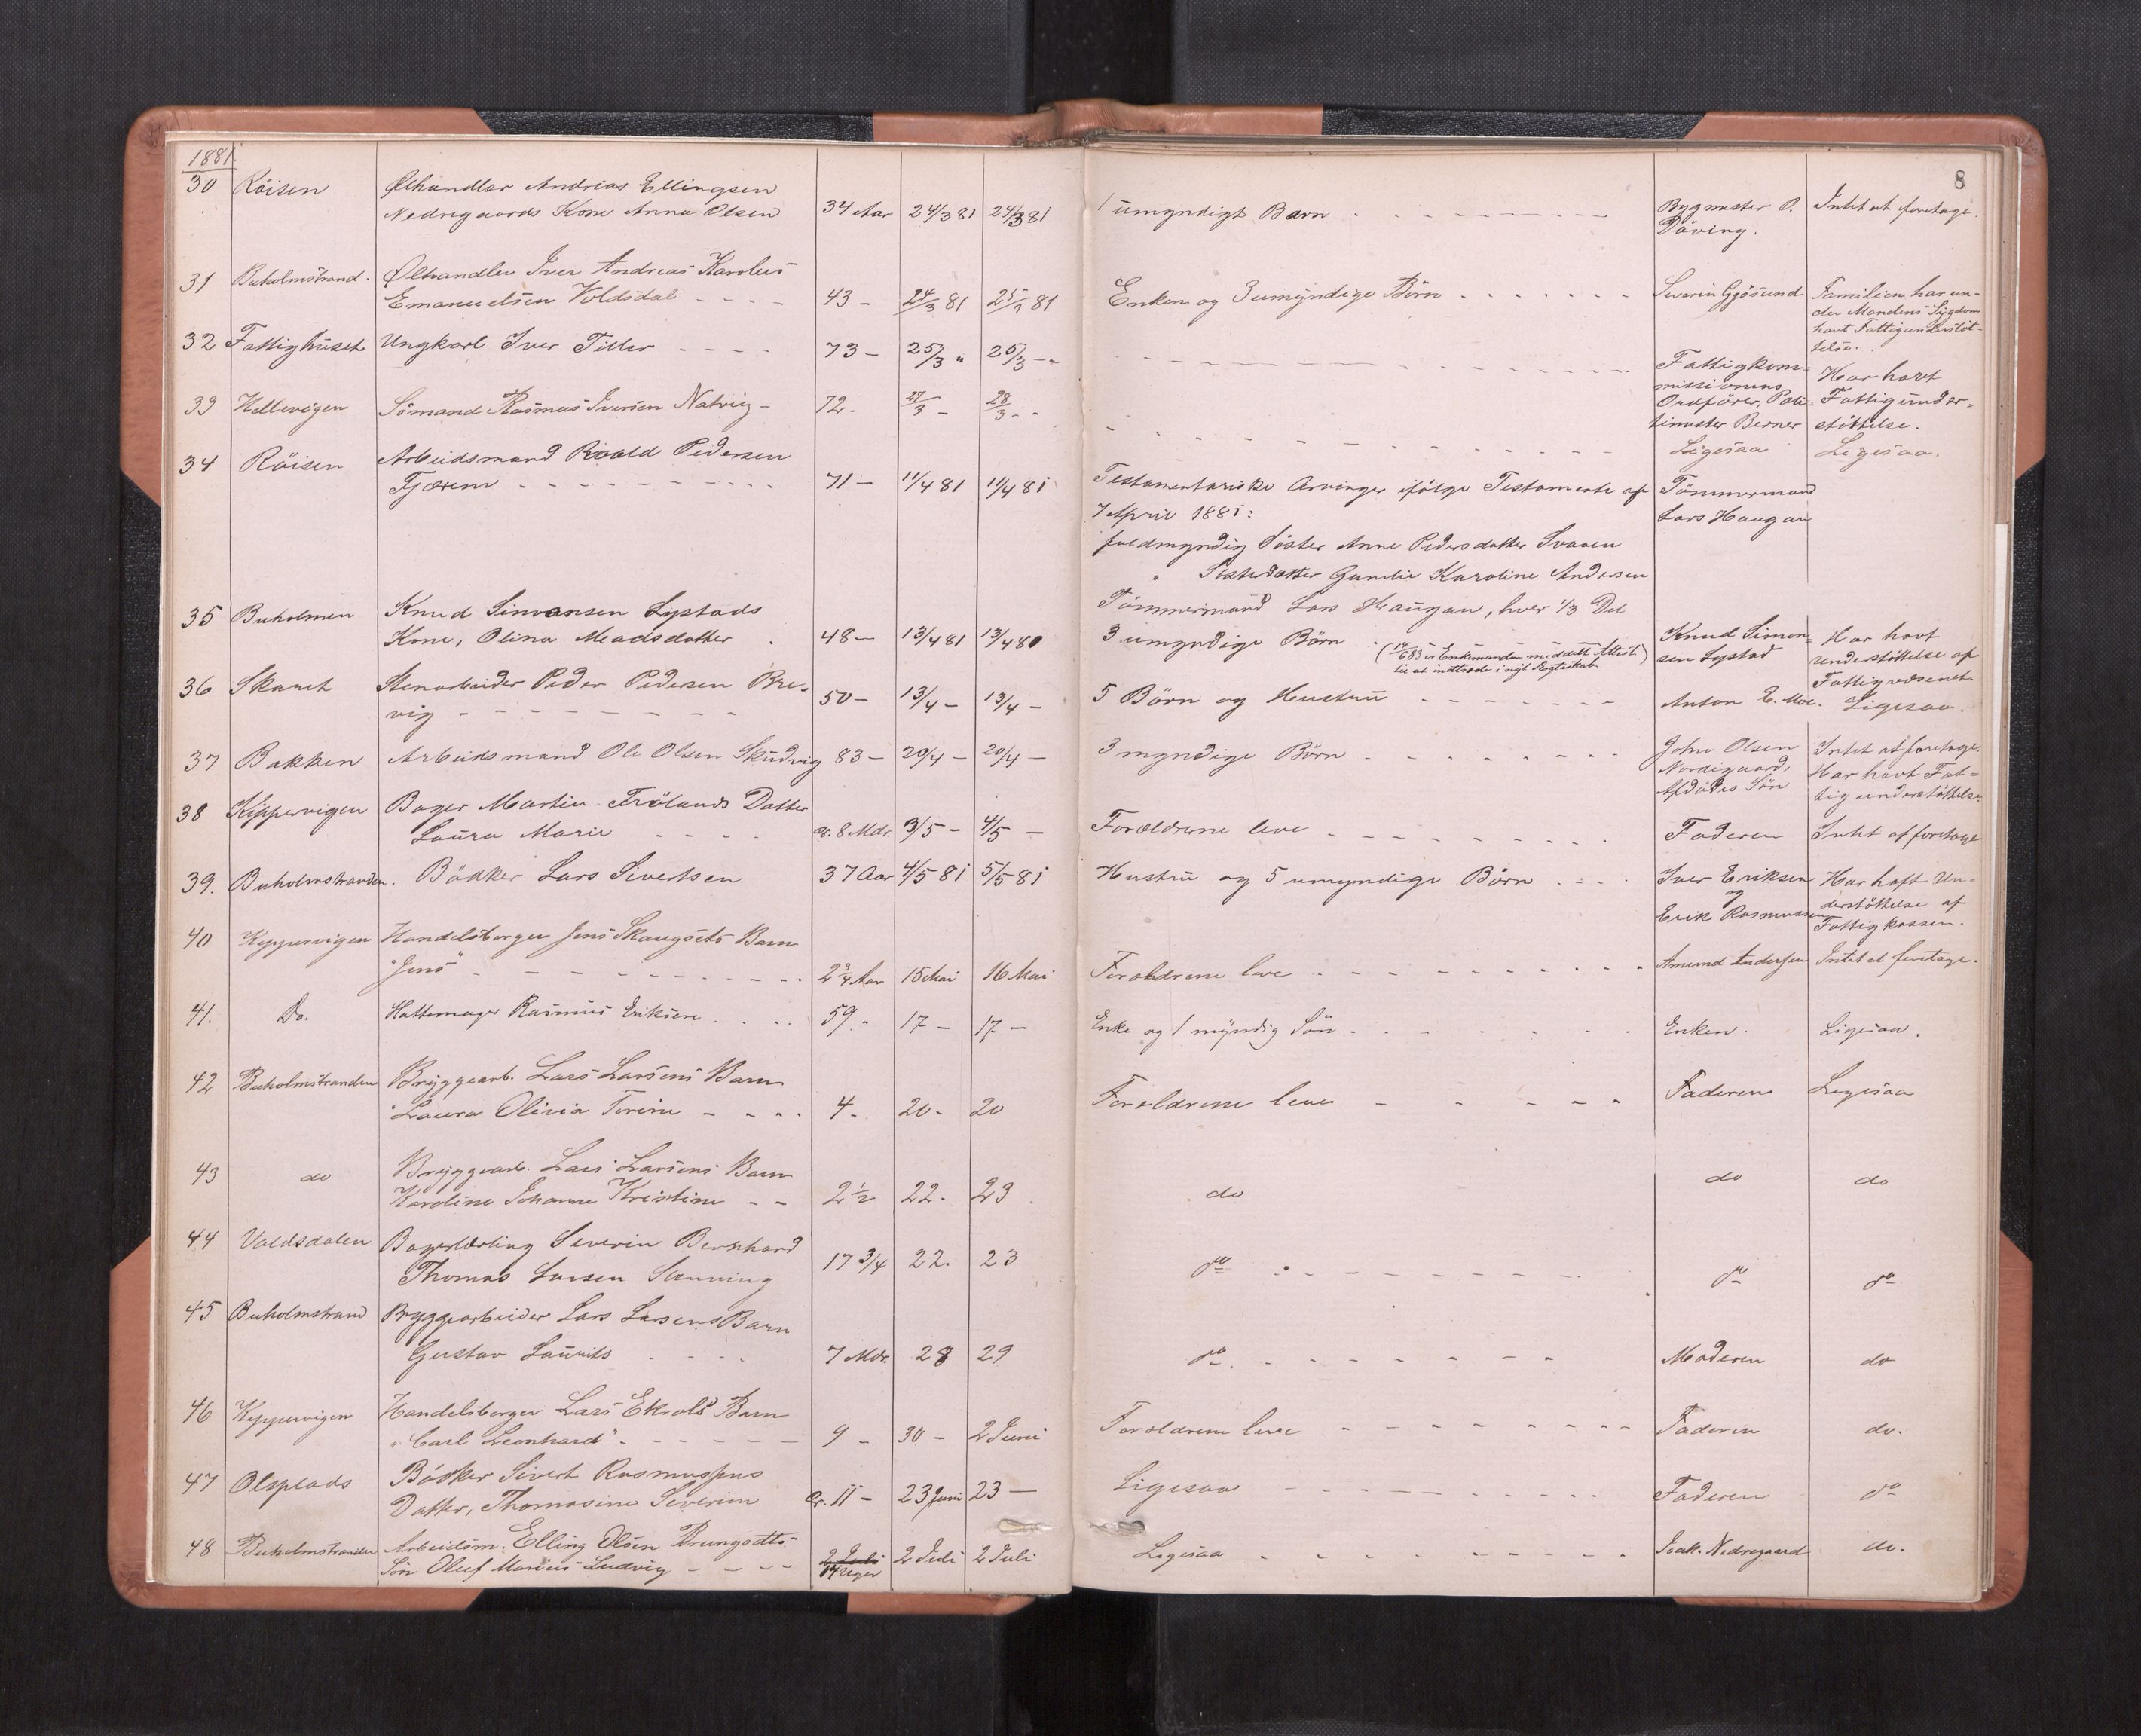 1881.
8
30 Röisen Ølhandler Andreas Ellingsen
Nedregaards Kone Anna Olsen 34 Aar 24/3 81 24/3 81 1 umyndigt Barn Bygmester O. Döving. Intet at foretage.
31 Buholmstrand. Ølhandler Iver Andreas Karolus
Emanuelsen Voldsdal 43 - 24/3 81 25/3 81 Enken og 3 umyndige Börn Severin Gjösund Familien har un-
der Mandens Sygdom
havt Fattigunderstöt-
telse.
32 Fattighuset Ungkarl Iver Tiller 73 - 25/3 " 25/3 - " Fattigkom-
missionens
Ordförer, Poli-
timester Berner
Har havt
Fattigunder-
stöttelse.
33 Hellevigen Sömand Rasmus Iversen Natvig - 72 - 27/3 - 28/3 - - Ligesaa Ligesaa.
34 Röisen Arbeidsmand Roald Pedersen
Fjærem 71 - 11/4 81 11/4 81 Testamentariske Arvinger ifölge Testamente af
7 April 1881:
fuldmyndig Söster Anne Pedersdatter Svanen
" Sösterdatter Karoline Andersen
Tömmermand Lars Haugan, hver 1/3 Del
Tömmermand
Lars Haugan
35 Buholmen Knud Simonsen Lystads
Kone, Olina Meadsdatter 48 - 13/4 81 13/4 80 3 umyndige Börn (14/6 83 er Enkemanden meddelt Attest
til at indtræde i nyt Ægteskab.) Knud Simon-
sen Lystad Har havt
understöttelse af
Fattigvæsenet
36 Skaret Stenarbeider Peder Pedersen Bre-
vig 50 - 13/4 - 13/4 - 5 Börn og Hustru Anton E. Moe. Ligesaa.
37 Bakken Arbeidsmand Ole Olsen Skudvig 83 - 20/4 - 20/4 - 3 myndige Börn John Olsen
Nordigaard,
Afdödes Sön Intet at foretage.
Har havt Fat-
tigunderstöttelse.
38 Kippervigen Bager Martin Frölands Datter
Laura Marie 8 Mdr. 3/5 - 4/5 - Forældrene leve Faderen Intet at foretage
39. Buholmstranden. Bödker Lars Sivertsen 37 Aar 4/5 81 5/5 81 Hustru og 5 umyndige Börn Iver Eriksen
og
Erik Rasmussen Har haft Un-
derstöttelse af
Fattigkassen.
40 Kippervigen Handelsborger Jens Skaugsets Barn
"Jens" 2 3/4 Aar 15 Mai 16 Mai Forældrene leve Amund Andersen Intet at foretage.
41. Do. Hattemager Rasmus Eriksen 59 - 17 - 17 - Enke og 1 myndig Sön Enken. Ligesaa.
42 Buholmstranden Bryggearb. Lars Larsens Barn
Laura Olivia 4 - 20 - 20 Forældrene leve Faderen Ligesaa
43 do Bryggearb. Lars Larsens Barn
Karoline Johanne Kristine 2 1/2 22 - 23 do do do
44 Valdsdalen Bagerlærling Severin Bernhard
Thomas Larsen 17 3/4 22. 23 do do do
45 Buholmstrand Bryggearbeider Lars Larsens Barn
Gustav Laurits 7 Mdr. 28 29 do. Moderen do
46 Kippervigen Handelsborger Lars Ekrolls Barn
"Carl Leonhard" 9 - 30 - 2 Juni Forældrene leve Faderen do.
47 Olsplads Bödker Sivert Rasmussens
Datter, Thomasine Severine 11 - 23 Juni 23 - Ligesaa Faderen do
48 Buholmstranden Arbeidsm. Elling Olsen
Sön Oluf Marius Ludvig 2 Juli
14 Uger 2 Juli 2 Juli Ligesaa Isak Nedregaard do.